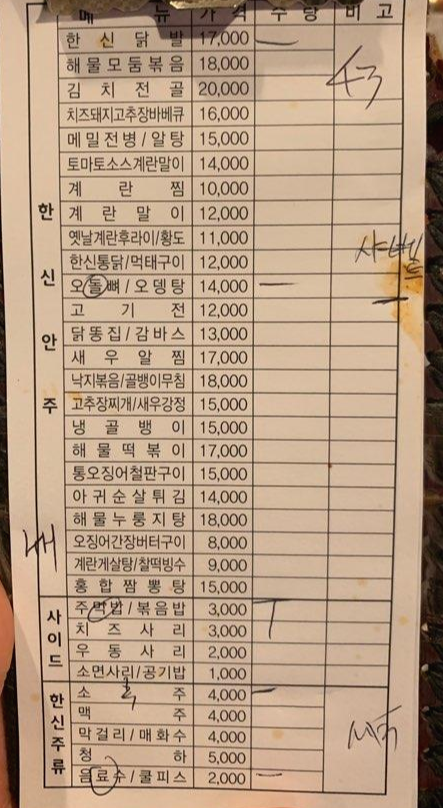 메 뉴 가 격 수 량 비 고
한 신 닭 발 17,000 一
해 물 모 둠 볶 음 18,000
43
김 치 전 골 20,000
치즈돼지고추장바베큐 16,000
메 밀 전 병 / 알 탕 15,000
토마토소스계란말이 14,000
계 란 찜 10,000
계 란 말 이 12,000
옛날계란후라이/황도 11,000
샤베트
한신통닭/먹태구이 12,000
오 돌 뼈 / 오 뎅 탕 14,000 一
고 기 전 12,000
닭 똥 집 / 감 바 스 13,000
새 우 알 찜 17,000
낙지볶음/골뱅이무침 18,000
고추장찌개/새우강정 15,000
냉 골 뱅 이 15,000
해 물 떡 볶 이 17,000
통오징어철판구이 15,000
아 귀 순 살 튀 김 14,000
해 물 누 룽 지 탕 18,000
오징어간장버터구이 8,000
계란게살탕/찰떡빙수 9,000
홍 합 짬 뽕 탕 15,000
한 신 안 주
주 먹 밥 / 볶 음 밥 3,000 T
치 즈 사 리 3,000
우 동 사 리 2,000
소면사리/공기밥 1,000
사 이 드
소 주 4,000 一
맥 주 4,000
막 걸 리 / 매 화 수 4,000
청 하 5,000
음 료 수 / 쿨 피 스 2,000 一
한 신 주 류